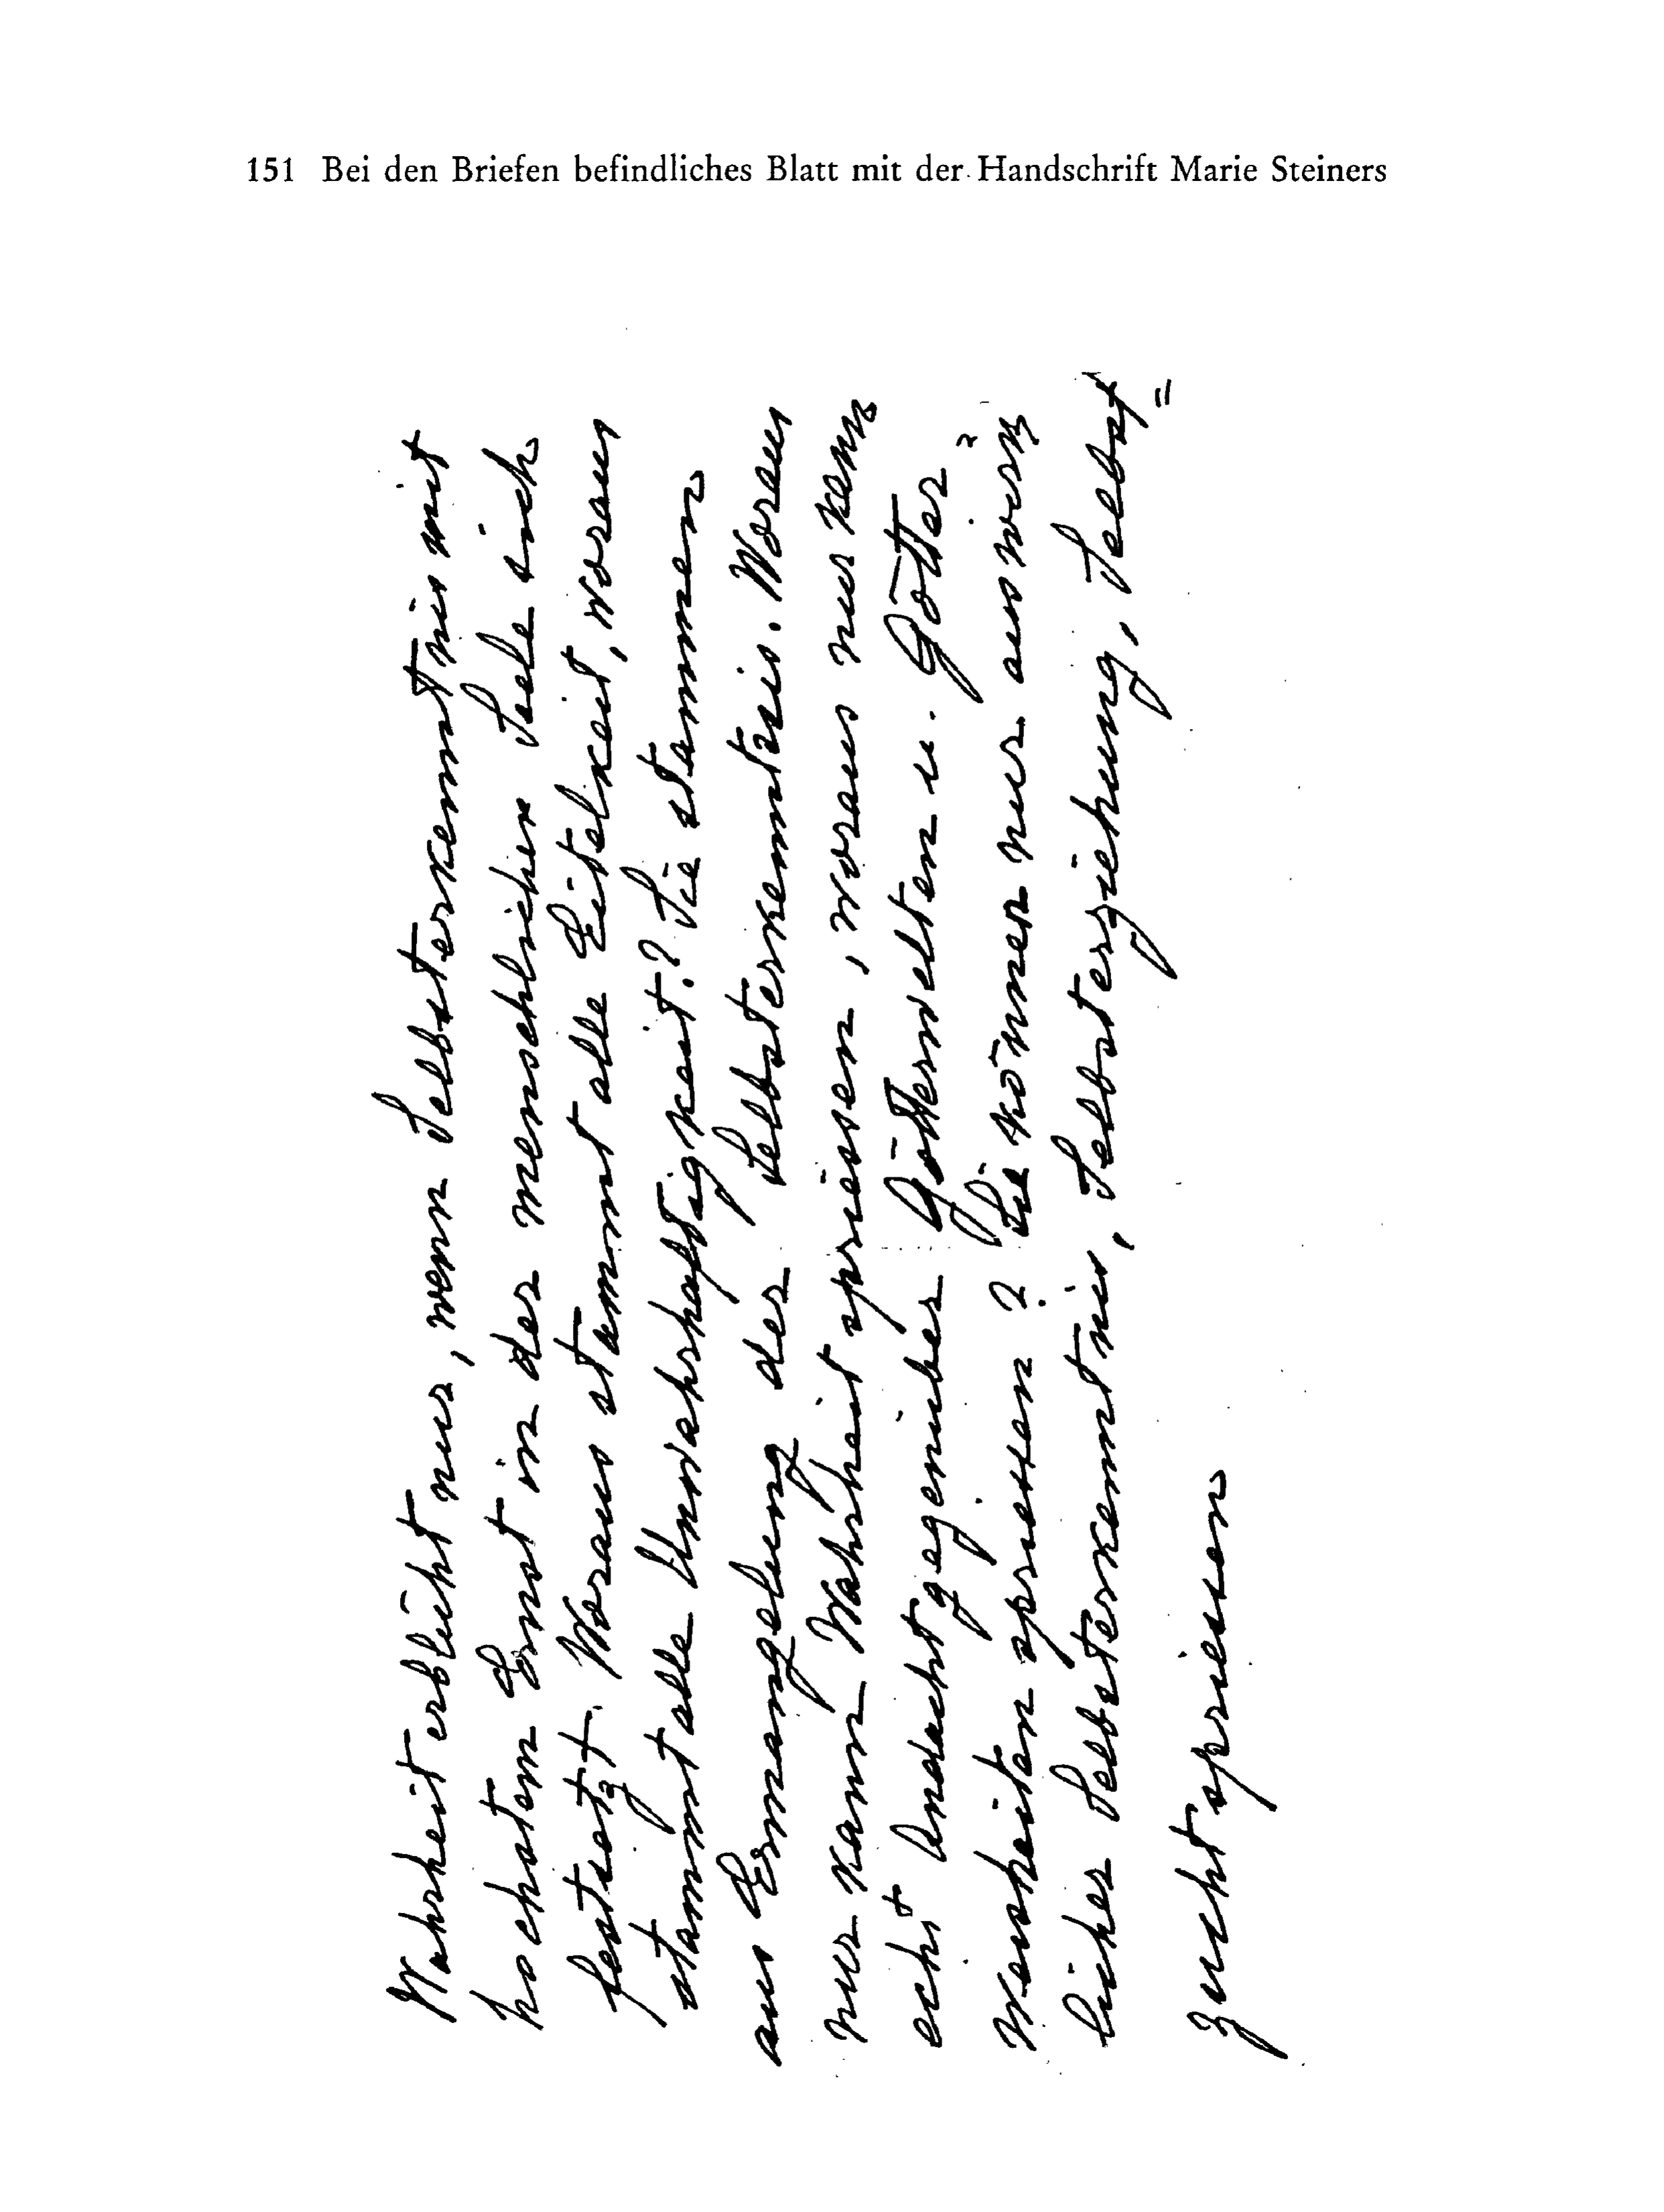 151 Bei den Briefen befindliches Blatt mit der Handschrift Marie Steiners
Wahrheit erblüht nur, wenn Selbsterkenntnis mit
hochstem Ernst in der menschlichen Seele sich
festsetzt. Woraus stammt alle Eitelkeit, woraus
stammt alle Unwahrhaftigkeit? Sie stammen
aus Ermangelung der Selbsterkenntnis. Woraus
nur kann Wahrheit spriessen, woraus nur kann
echt Andacht gegenüber Götterwelten u. Götter=
weisheiten spriessen? Sie können nur aus wirk
licher Selbsterkenntnis, Selbsterziehung, Selbst=
zucht spriessen